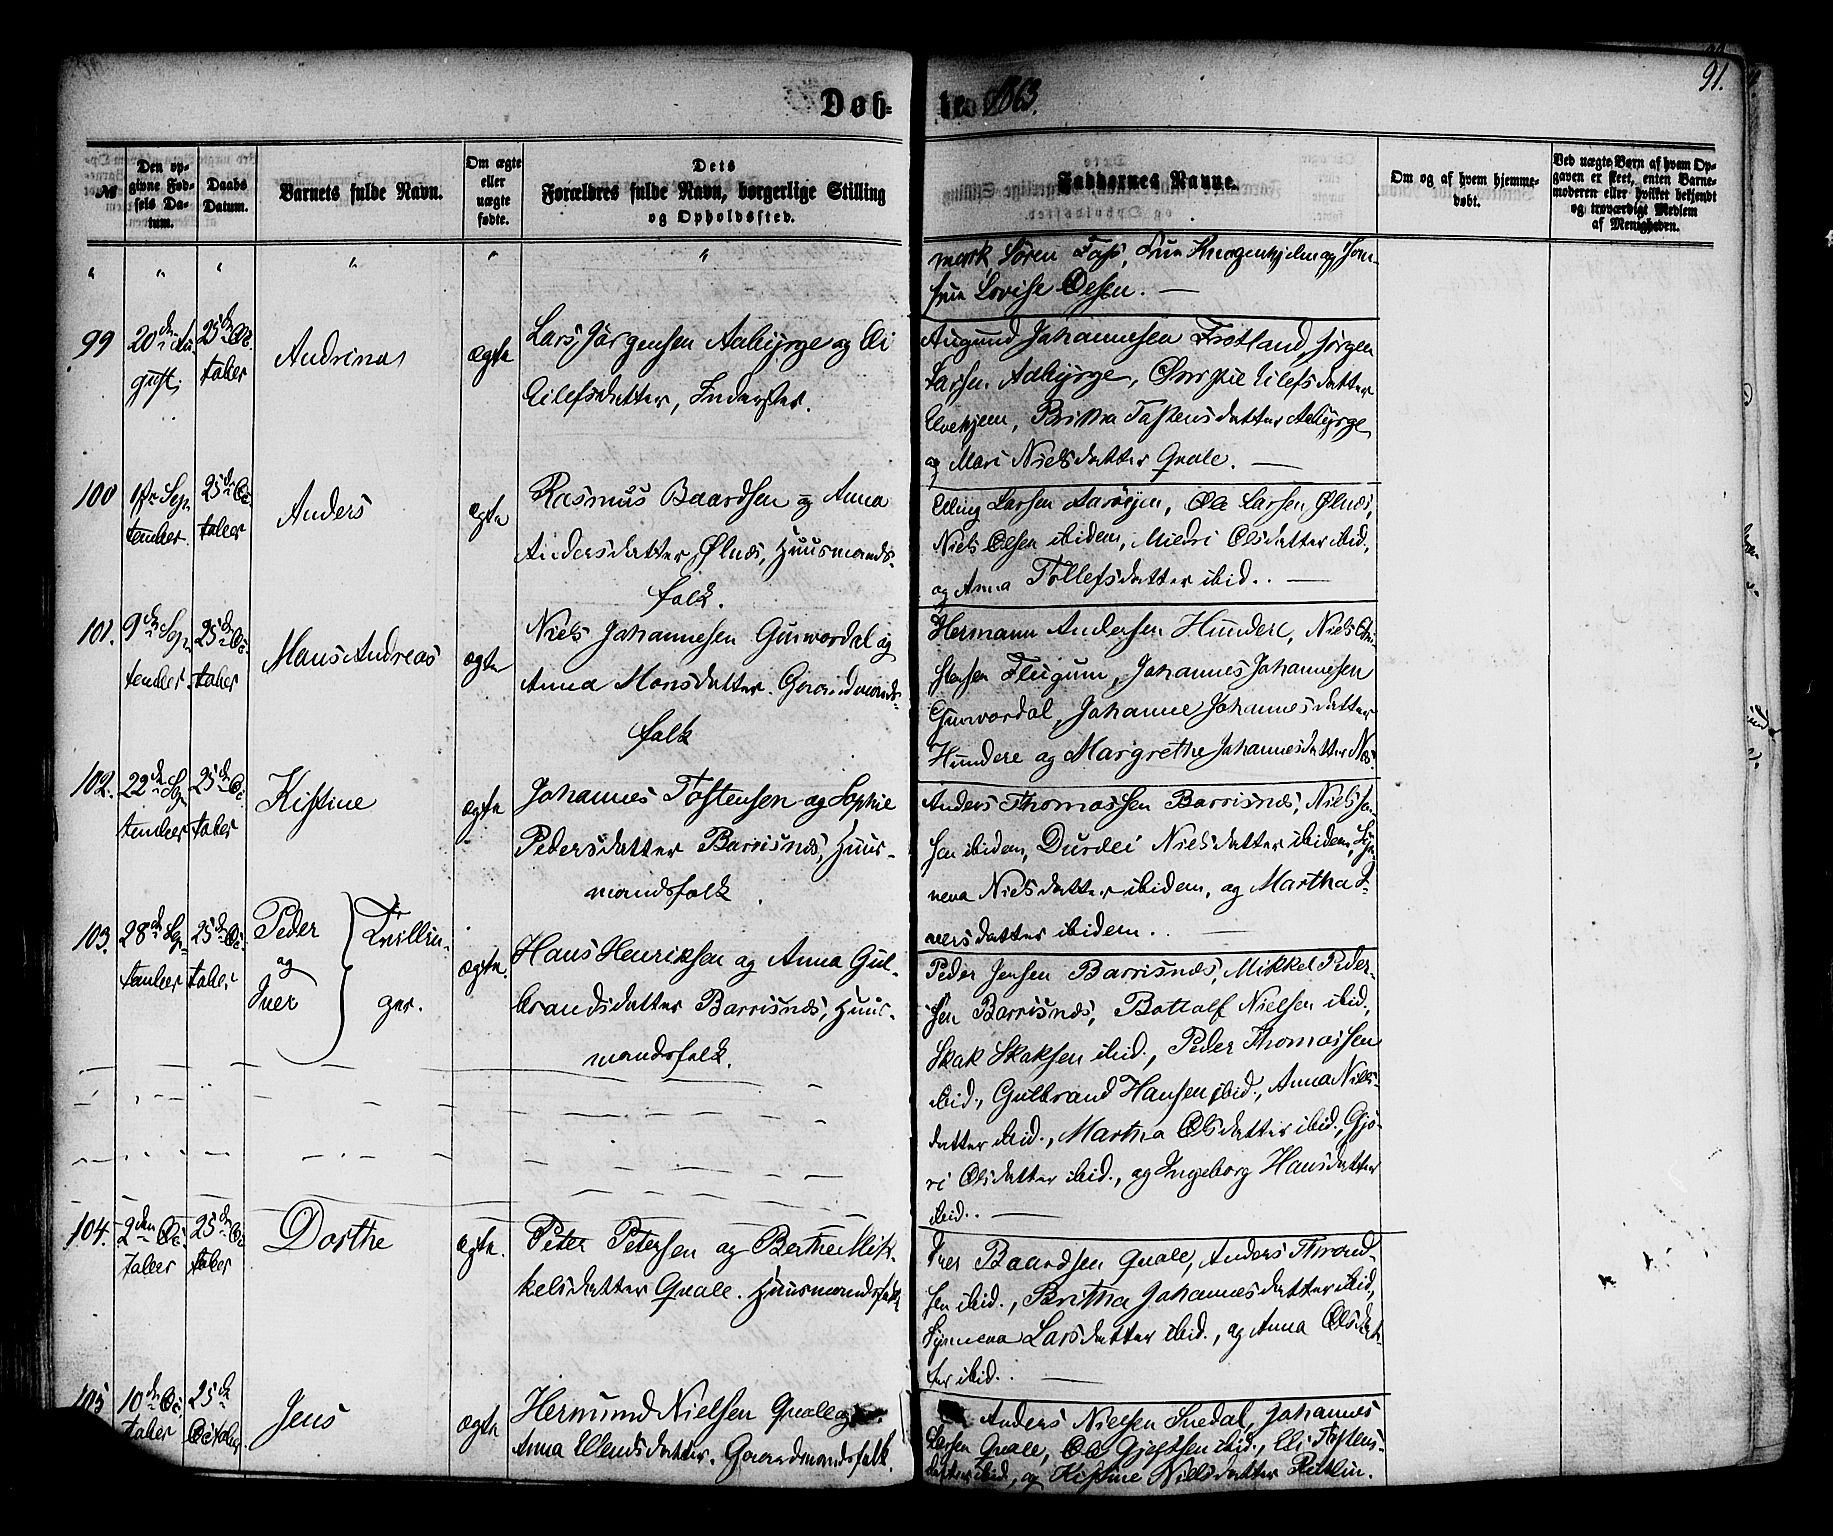 91.
Døb-
te 1863.
№
Den op-
givne Fød-
sels Da-
tum.
Daabs
Datum.
Barnets fulde Navn.
Om ægte
eller
uægte
fødte.
Dets
Forældres fulde Navn, borgerlige Stilling
og Opholdssted.
Faddernes Navne.
Om og af hvem hjemme-
døbt.
Ved uægte Børn af hvem Op-
gaven er skeet, enten Barne-
moderen eller hvilket bekjendt
og troværdigt Medlem
af Menigheden.
" " " " " "
mark, Sören Fass, Frue Knagenhjelm og Jom-
frue Lovise Olsen. —
99
20den Au-
gust.
25de Oc-
tober
Andrina
ægte
Lars Jörgensen Aabyrge og Eli
Eilefsdatter, Inderster.
Augund Johannesen Frotland, Jörgen
Larsen Aabyrge, Eilefsdatter
Britha Tostensdatter Aabyrge
og Mari Nielsdatter Quale. —
100
1ste Sep-
tember.
25de Oc-
tober
Anders
ægte
Rasmus Baardsen og Anna
Andersdatter Ølnæs, Huusmands-
folk.
Elling Larsen Aaröen, Ole Larsen Ølnæs,
Niels Olsen ibidem, Olsdatter ibid,
og Anna Tollefsdatter ibid. —
101.
9de Sep-
tember.
25de Oc-
tober
Hans Andreas
ægte
Niels Johannesen Gunvordal og
Anna Monsdatter. Gaardmands-
folk
Hermann Andersen Hundere, Niels Chri-
stensen Flugum, Johannes Johannesen
Gunvordal, Johanne Johannesdatter
Hundere og Margrethe Johannesdatter Næs
102.
22de Sep-
tember
25de Oc-
tober
Kistine
ægte
Johannes Tostensen og Sophie
Pedersdatter Barsnæs, Huus-
mandsfolk
Anders Thomassen Barrisnæs, Niels Jen-
sen ibidem, Durdei Nielsdatter ibidem, Syn-
neva Nielsdatter ibidem, og Martha I-
versdatter ibidem. —
103.
28de Sep-
tember
25de Oc-
tober
Peder
og
Iver
Tvillin-
ger.
ægte.
Hans Henriksen og Anna Gul-
brandsdatter Barrisnæs, Huus-
mandsfolk.
Peder Jensen Barrisnæs, Mikkel Peder-
sen Barrisnæs, Bottolf Nielsen ibid,
Skak Skaksen ibid., Peder Thomassen
ibid., Gulbrand Hansen ibid., Anna Niels-
datter ibid., Martha Olsdatter ibid., Gjö-
ri Olsdatter ibid., og Ingeborg Hansdatter
ibid. —
104.
2den Oc-
tober
25de Oc-
tober
Dorthe
ægte.
Peter Petersen og Berthe Mik-
kelsdatter Quale. Huusmandsfolk
Iver Baardsen Quale, Anders Thrond-
sen ibid., Britha Johannesdatter ibid,
Synneva Larsdatter ibid., og Anna Olsdat-
ter ibid. —
105
10de Oc-
tober
25de
October
Jens
ægte
Hermund Nielsen Quale og
Anna Gaardmandsfolk.
Anders Nielsen Snedal, Johannes
Quale, Ole ibid., Eli Tostens-
datter ibid, og Kistine Nielsdatter